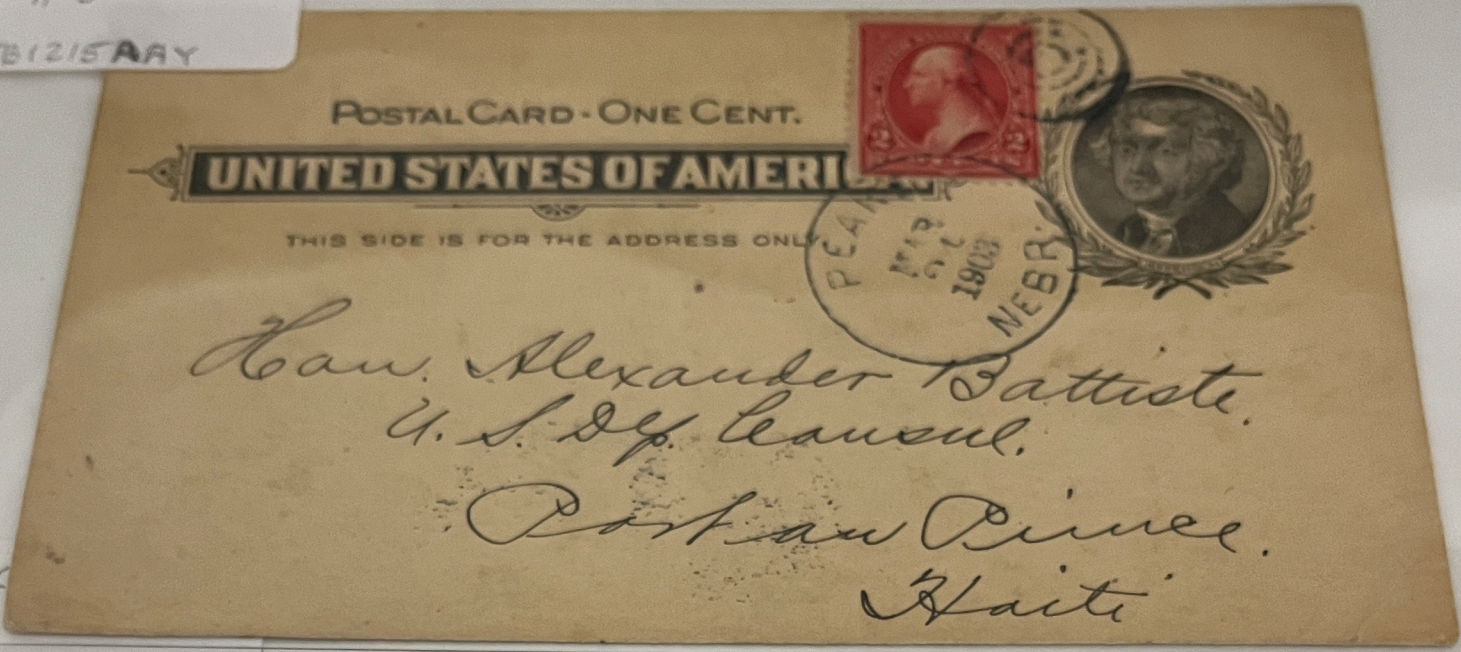 B1215AAY
POSTAL CARD - ONE CENT.
UNITED STATES OF AMERICA.
THIS SIDE IS FOR THE ADDRESS ONLY
2 2
PEAK
MAR
1903
NEBR.
Hon. Alexander Battiste.
U. S. Dep. Consul.
Port au Prince.
Haiti